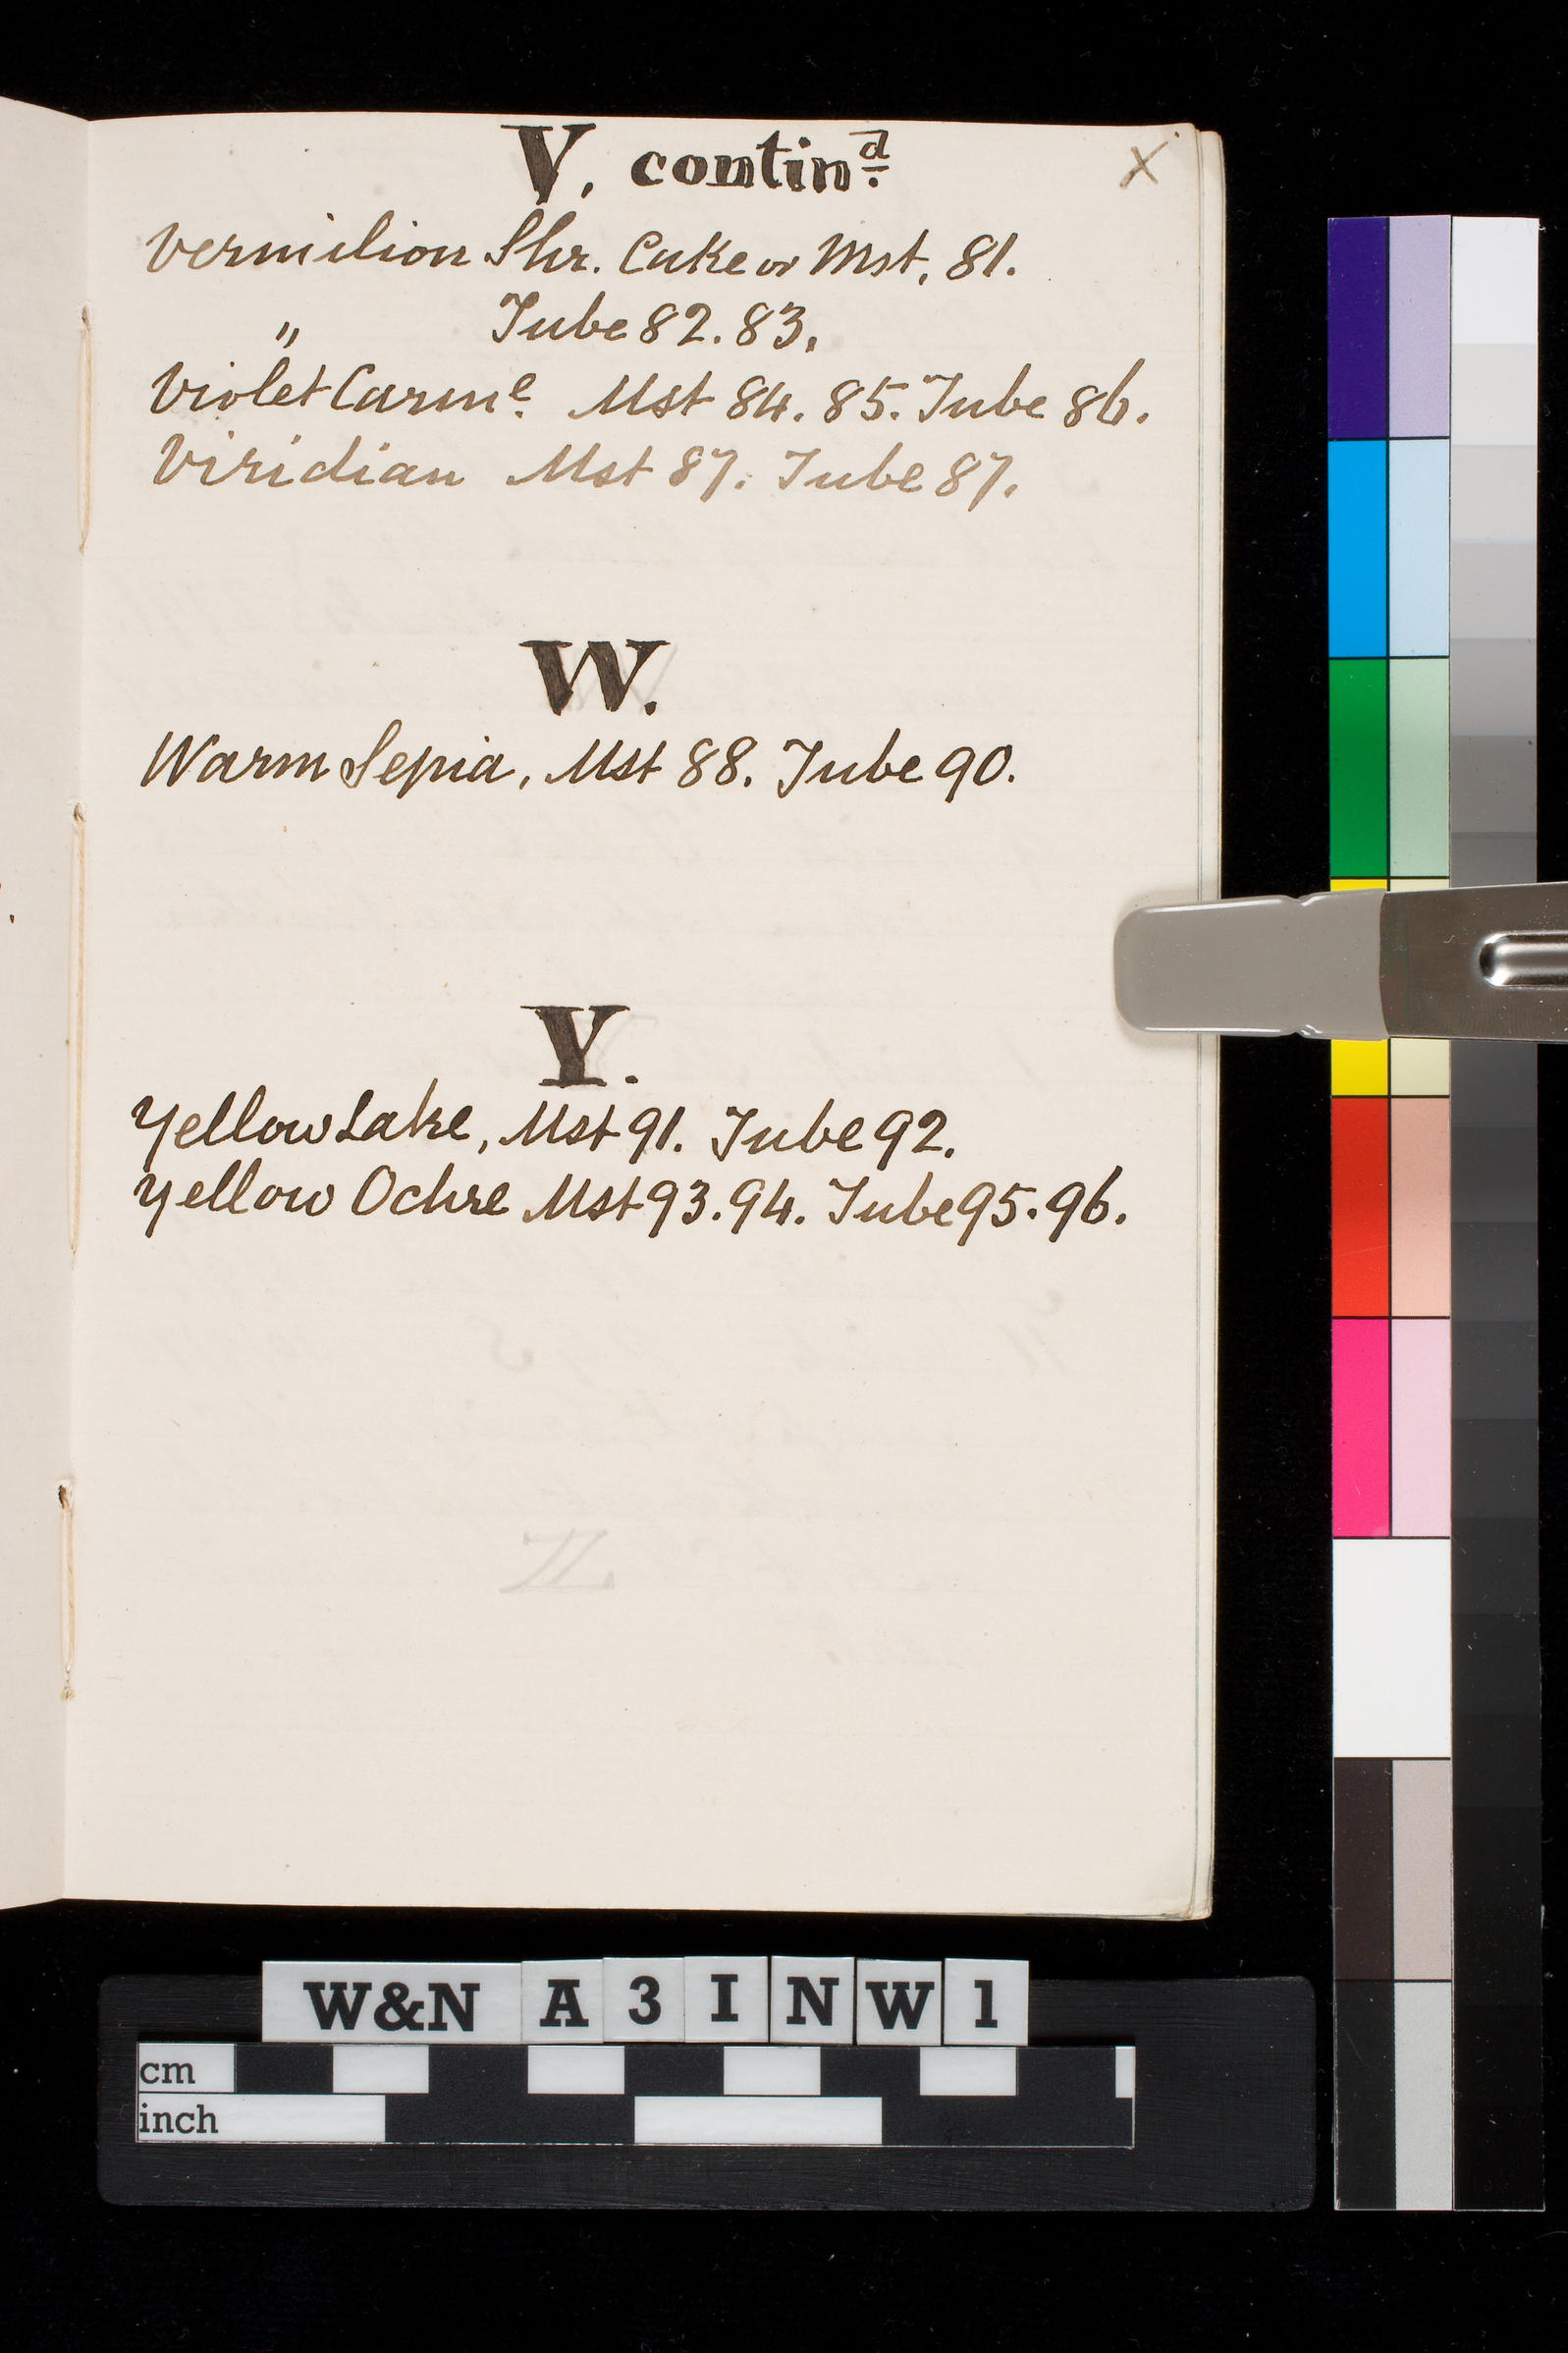 V. contin.d
X
Vermilion Shr. Cake or Mst. 81.
" Tube 82. 83.
Violet Carm.e Mst 84. 85. Tube 86.
Viridian Mst 87. Tube 87.
W.
Warm Sepia, Mst 88. Tube 90.
Y.
Yellow Lake, Mst 91. Tube 92.
Yellow Ochre Mst 93. 94. Tube 95. 96.
Z
W&N A 3 I N W 1
cm
inch